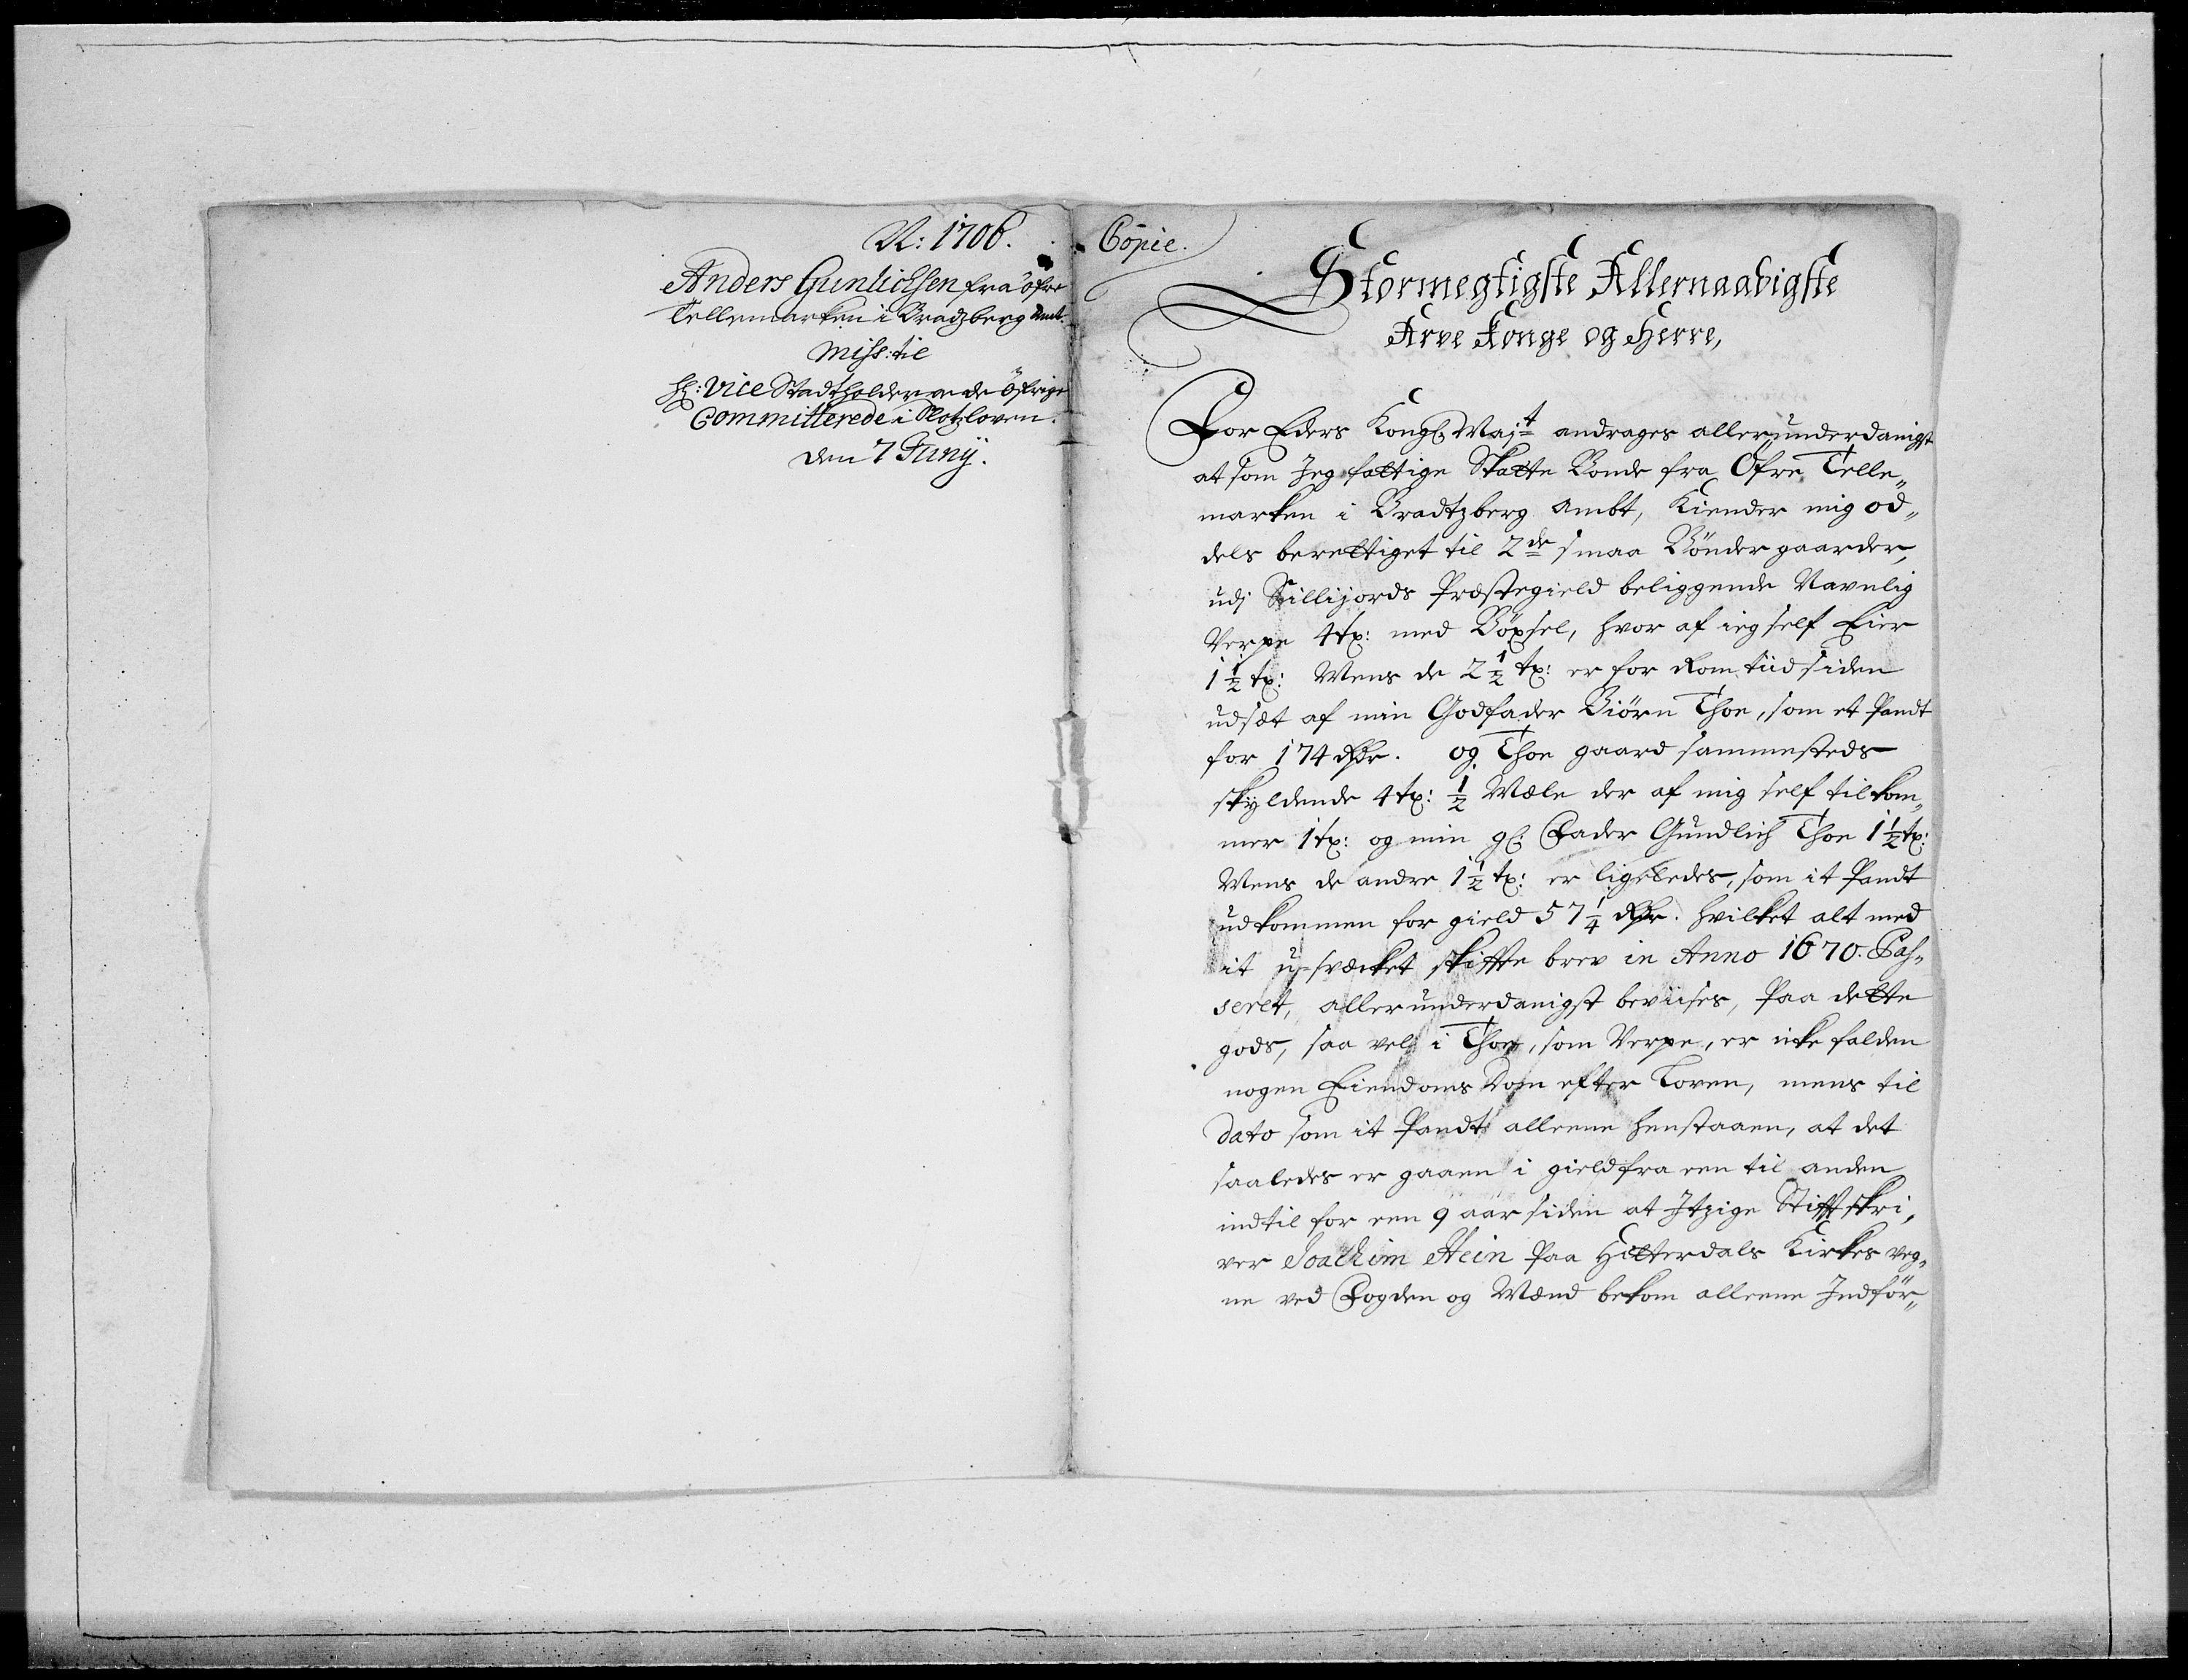 N: 1706.
Anders Gunlichsen fra öfre
Tellemarken i Bradzberg Amt.
Miss: til
Hr: Vice Stadtholder og de öfrige
Committerede i Slotzloven.
den 7 Junij.
Copie.
Stormegtigste Allernaadigste
Arve Konge og Herre,
For Eders Kongl. Majt andrages allerunderdanigst
at som Jeg fattige Skatte Bonde fra Öfre Telle„
marken i Bradtzberg ambt, Kiender mig od„
dels berettiget til 2de smaa Bönder gaarder,
udj Sillijords Præstegield beliggende Navnlig
Verpe 4 tp: med Böxsel, hvor af ieg self Eier
1 1/2 tp: Mens de 2 1/2 tp: er for Rom tiid siden
udsæt af min Godfader Biörn Thoe, som et Pandt
for 174 Rdr. og Thoe gaard sammesteds
skyldende 4 tp: 1/2 Mæle der af mig self tilkom„
mer 1 tp: og min gl. Fader Gundlich Thoe 1 1/2 tp:
Mens de andre 1 1/2 tp: er ligeledes, som it Pandt
udkommen for gield 57 1/4 Rdr. hvilket alt med
it u-svæcket skiffte brev in Anno 1670. Pas„
seret, allerunderdanigst beviises, Paa dette
gods, saa vel i Thoe, som Verpe, er icke falden
nogen Eiendoms Dom efter Loven, mens til
Dato som it Pandt alleene henstaaen, at det
saaledes er gaaen i gield fra een til anden
indtil for een 9 aar siden at Itzige Stifftskri„
ver Joachim Stein Paa Hitterdals Kirkes veg„
ne ved Fogden og Mænd bekom alleene Indför„